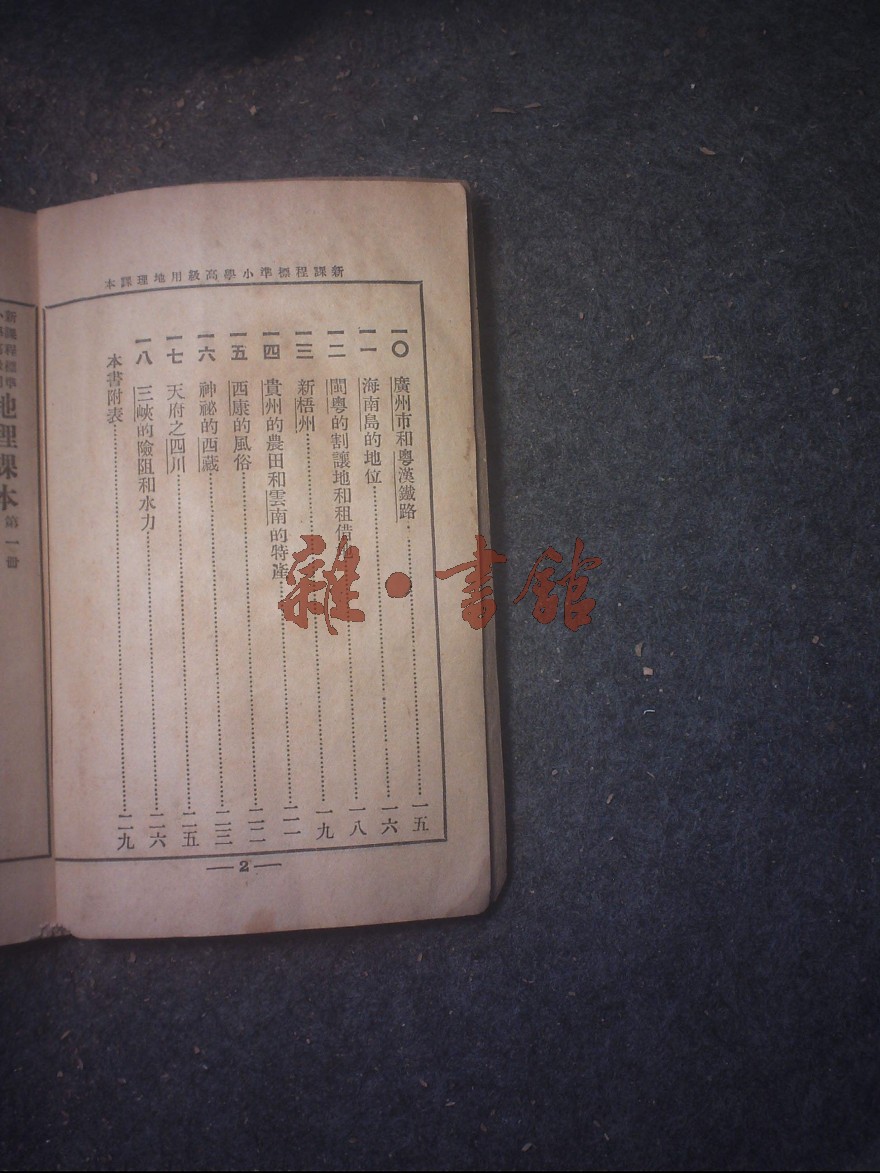 新課程標準小學高級用地理課本
一〇 廣州市和粵漢鐵路……一五
一一 海南島的地位……一六
一二 閩粵的割讓地和租借地……一八
一三 新梧州……一九
一四 貴州的農田和雲南的特產……二一
一五 西康的風俗……二二
一六 神祕的西藏……二三
一七 天府之四川……二五
一八 三峽的險阻和水力……二六
本書附表……二九
—2—
新課程標準
地理課本 第一冊
雜·書館